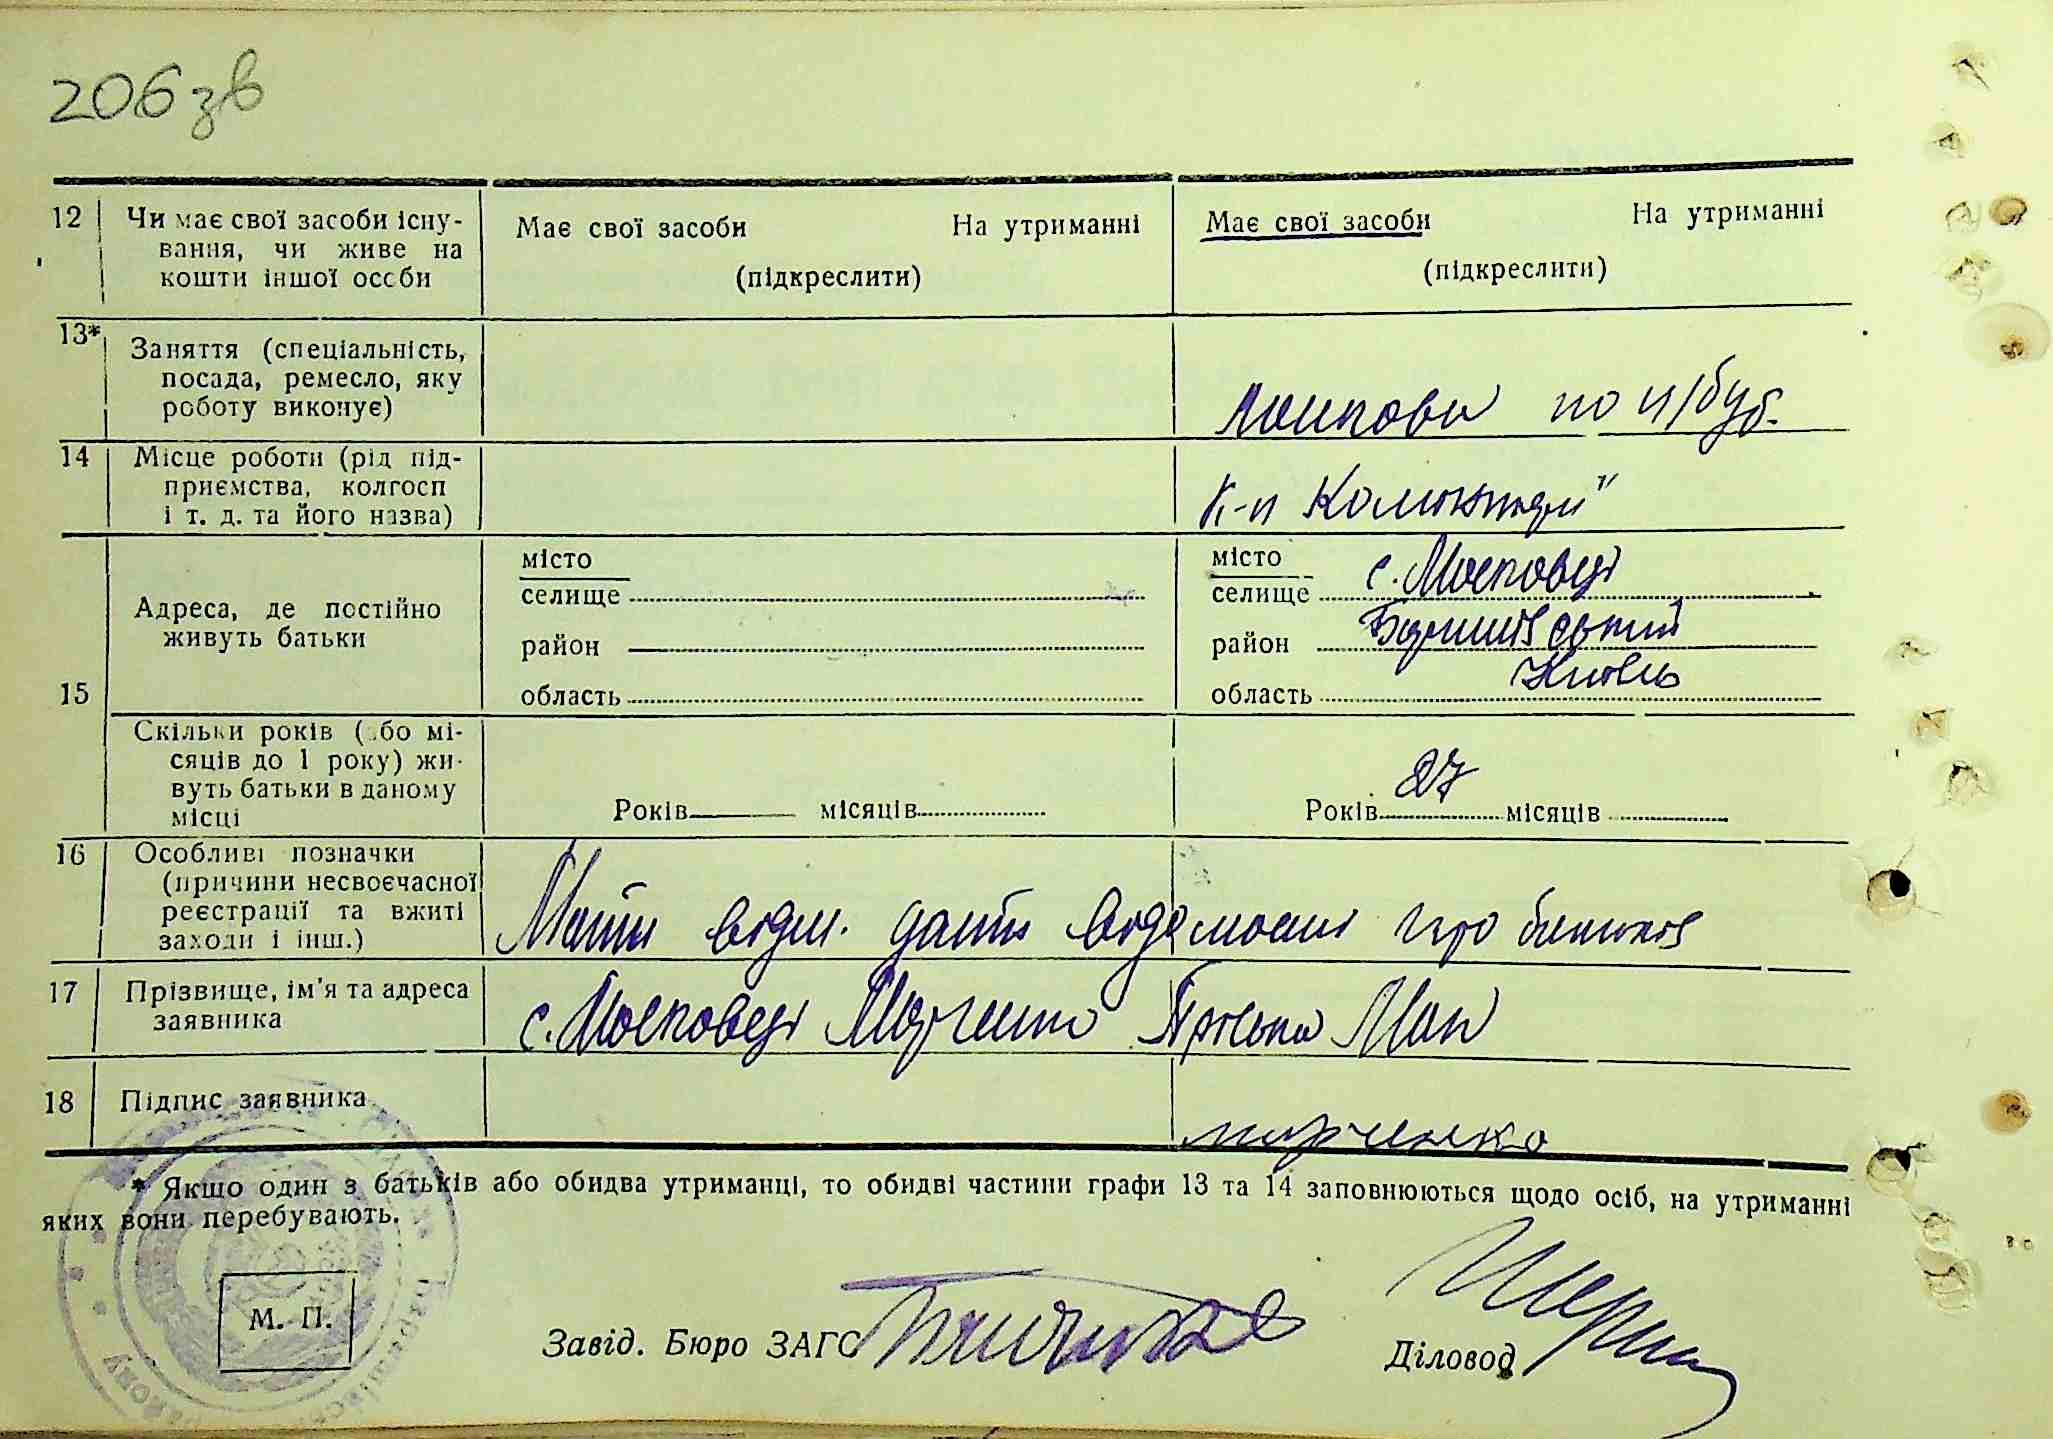 206 зв
12 Чи має свої засоби існу- Має свої засоби На утриманні Має свої засоби На утриманні
вання, чи живе на
кошти іншої особи (підкреслити) (підкреслити)
13* Заняття (спеціальність,
посада, ремесло, яку
роботу виконує) по н/буд.
14 Місце роботи (рід під-
приємства, колгосп К-п Комінтерн"
і т. д. та його назва)
місто місто с. Московці
Адреса, де постійно селище селище
живуть батьки район район Баришівський
15 область область Київсь
Скільки років (або мі-
сяців до 1 року) жи-
вуть батьки в даному Років місяців Років 27 місяців
місці
16 Особливі позначки
(причини несвоєчасної
реєстрації та вжиті Мати відм. дати відомості про батьків
заходи і інш.)
17 Прізвище, ім'я та адреса с. Московці Марченко Пріська Мак
заявника
18 Підпис заявника марченко
* Якщо один з батьків або обидва утриманці, то обидві частини графи 13 та 14 заповнюються щодо осіб, на утриманні
яких вони перебувають.
М. П.
Завід. Бюро ЗАГС Діловод